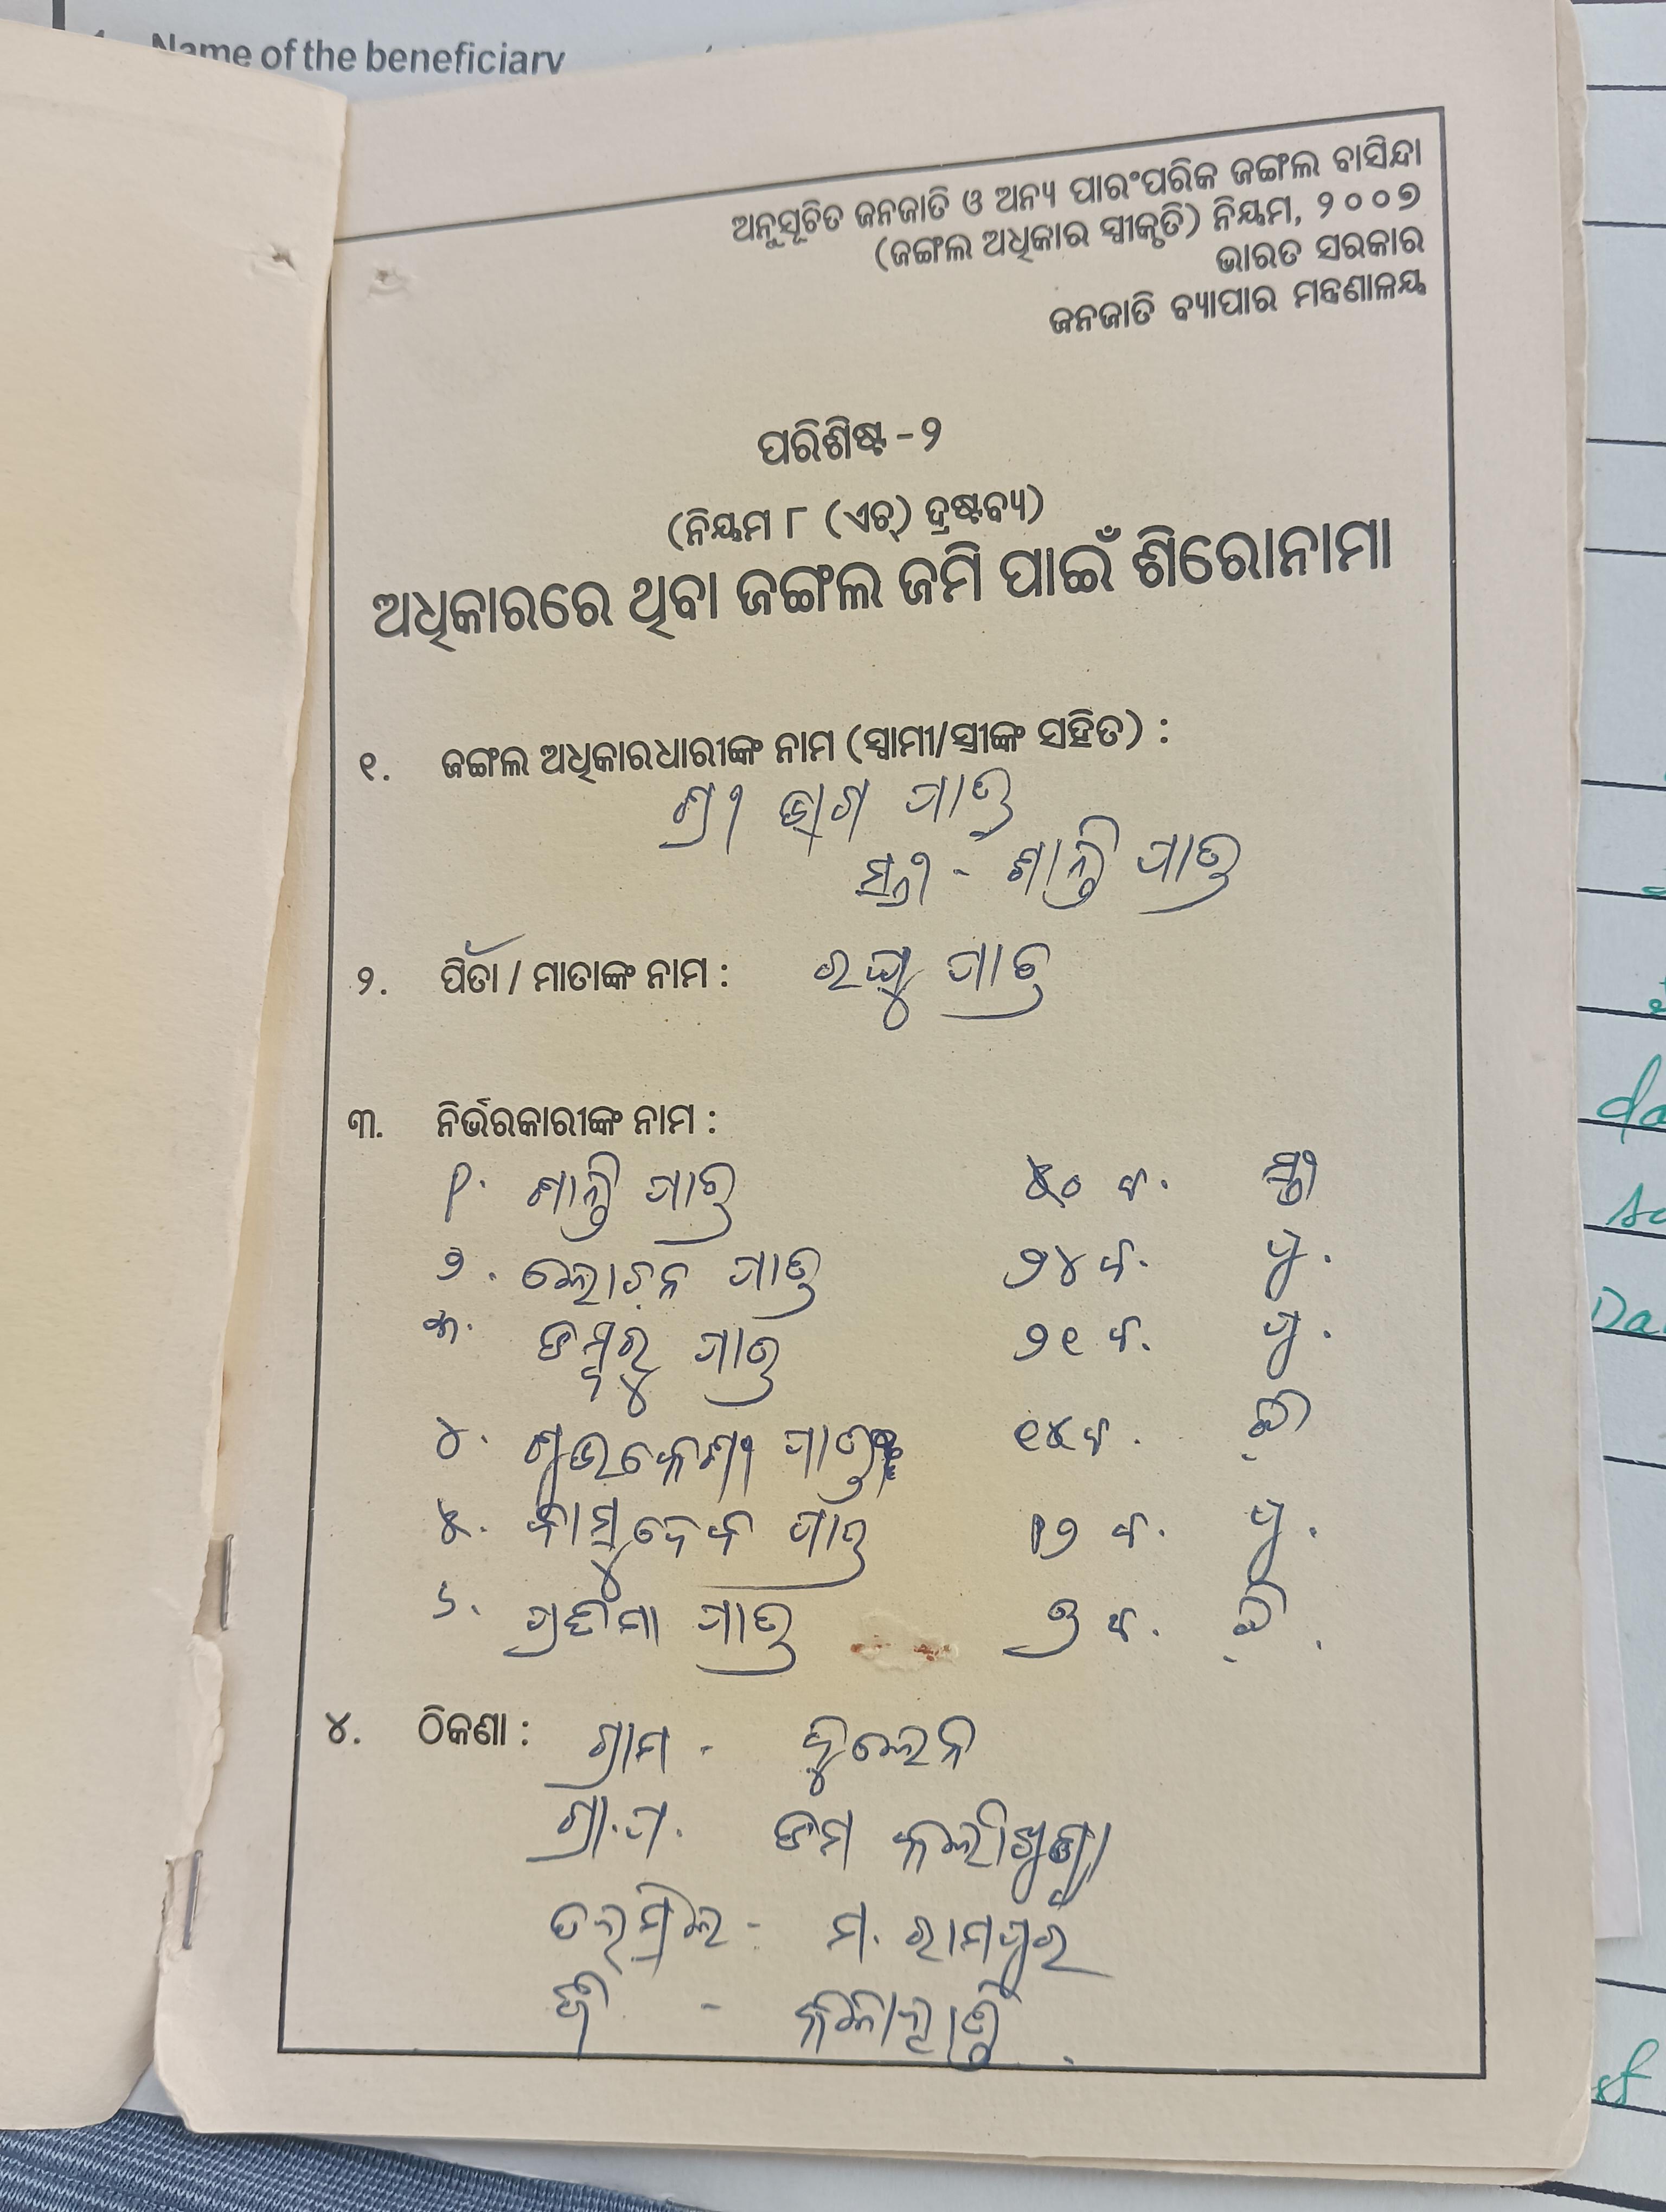 Name of the beneficiary
ଅନୁସୂଚିତ ଜନଜାତି ଓ ଅନ୍ୟ ପାରଂପରିକ ଜଙ୍ଗଲ ବାସିନ୍ଦା
(ଜଙ୍ଗଲ ଅଧିକାର ସ୍ୱୀକୃତି) ନିୟମ, ୨୦୦୭
ଭାରତ ସରକାର
ଜନଜାତି ବ୍ୟାପାର ମନ୍ତ୍ରଣାଳୟ
ପରିଶିଷ୍ଟ -୨
(ନିୟମ ୮ (ଏଚ୍) ଦ୍ରଷ୍ଟବ୍ୟ)
ଅଧିକାରରେ ଥିବା ଜଙ୍ଗଲ ଜମି ପାଇଁ ଶିରୋନାମା
୧. ଜଙ୍ଗଲ ଅଧିକାରଧାରୀଙ୍କ ନାମ (ସ୍ୱାମୀ/ସ୍ତ୍ରୀଙ୍କ ସହିତ) :
ଶ୍ରୀ ପାତ୍ର
ସ୍ତ୍ରୀ - ଶାନ୍ତି ପାତ୍ର
୨. ପିତା / ମାତାଙ୍କ ନାମ : ରଘୁ ପାତ୍ର
୩. ନିର୍ଭରକାରୀଙ୍କ ନାମ :
୧. ଶାନ୍ତି ପାତ୍ର ୫୦ ବ. ସ୍ତ୍ରୀ
୨. ଲୋଚନ ପାତ୍ର ୨୪ ବ. ପୁ.
୩. ଡମ୍ବରୁ ପାତ୍ର ୨୧ ବ. ପୁ.
୪. ପାତ୍ର ୧୪ ବ. ଝି
୫. ବାସୁଦେବ ପାତ୍ର ୧୨ ବ. ପୁ.
୬. ପାତ୍ର ବ. ଝି
୪. ଠିକଣା : ଗ୍ରାମ -
ଗ୍ରା.ପ.
ତହସିଲ - ମ. ରାମପୁର
ଜି - କଳାହାଣ୍ଡି